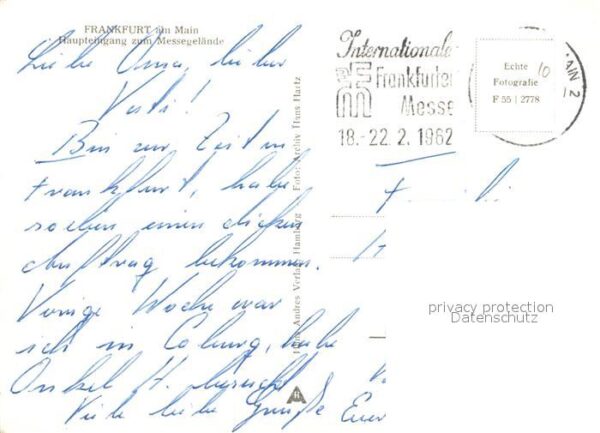 FRANKFURT am Main
Haupteingang zum Messegelände
Liebe Oma, lieber
Vati!
Bin zur Zeit in
Frankfurt, habe
soeben einen dicken
Auftrag bekommen.
Vorige Woche war
ich in Coburg, habe
Onkel H. besucht
Viele liebe Grüße Euer
Andres Verlag Hamburg Foto: Archiv Hans Hartz
Internationale
Frankfurter
Messe
18.-22. 2. 1962
MAIN 2
10
Echte
Fotografie
F 55 | 2778
privacy protection
Datenschutz